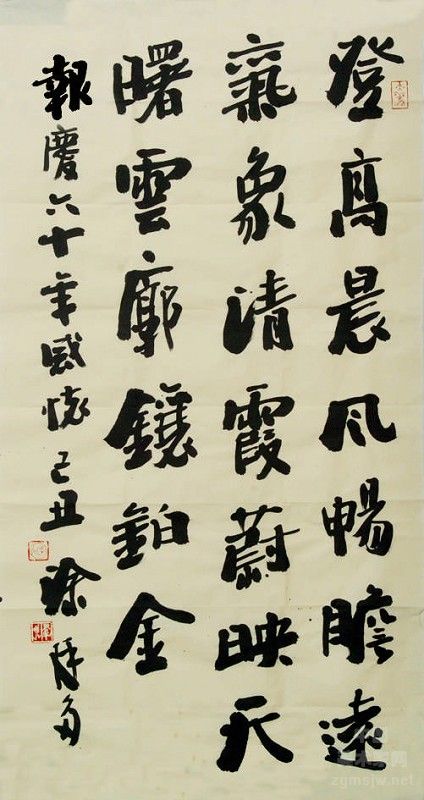 登高晨风暢瞻遠
氣象清霞蔚映天
曙雲廓鑲鉑金
報慶六十年感懷己丑徐
zgmsjw.net